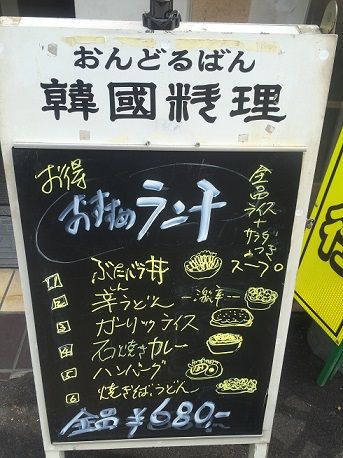 おんどるばん
韓國料理
お得
おすすめランチ
全品
ライス
+
サラダ
つき
スープ
1 ぶたバラ丼
2 辛うどん -激辛-
3 ガーリックライス
4 石焼きカレー
5 ハンバーグ
6 焼きそば、うどん
全品 ¥680-